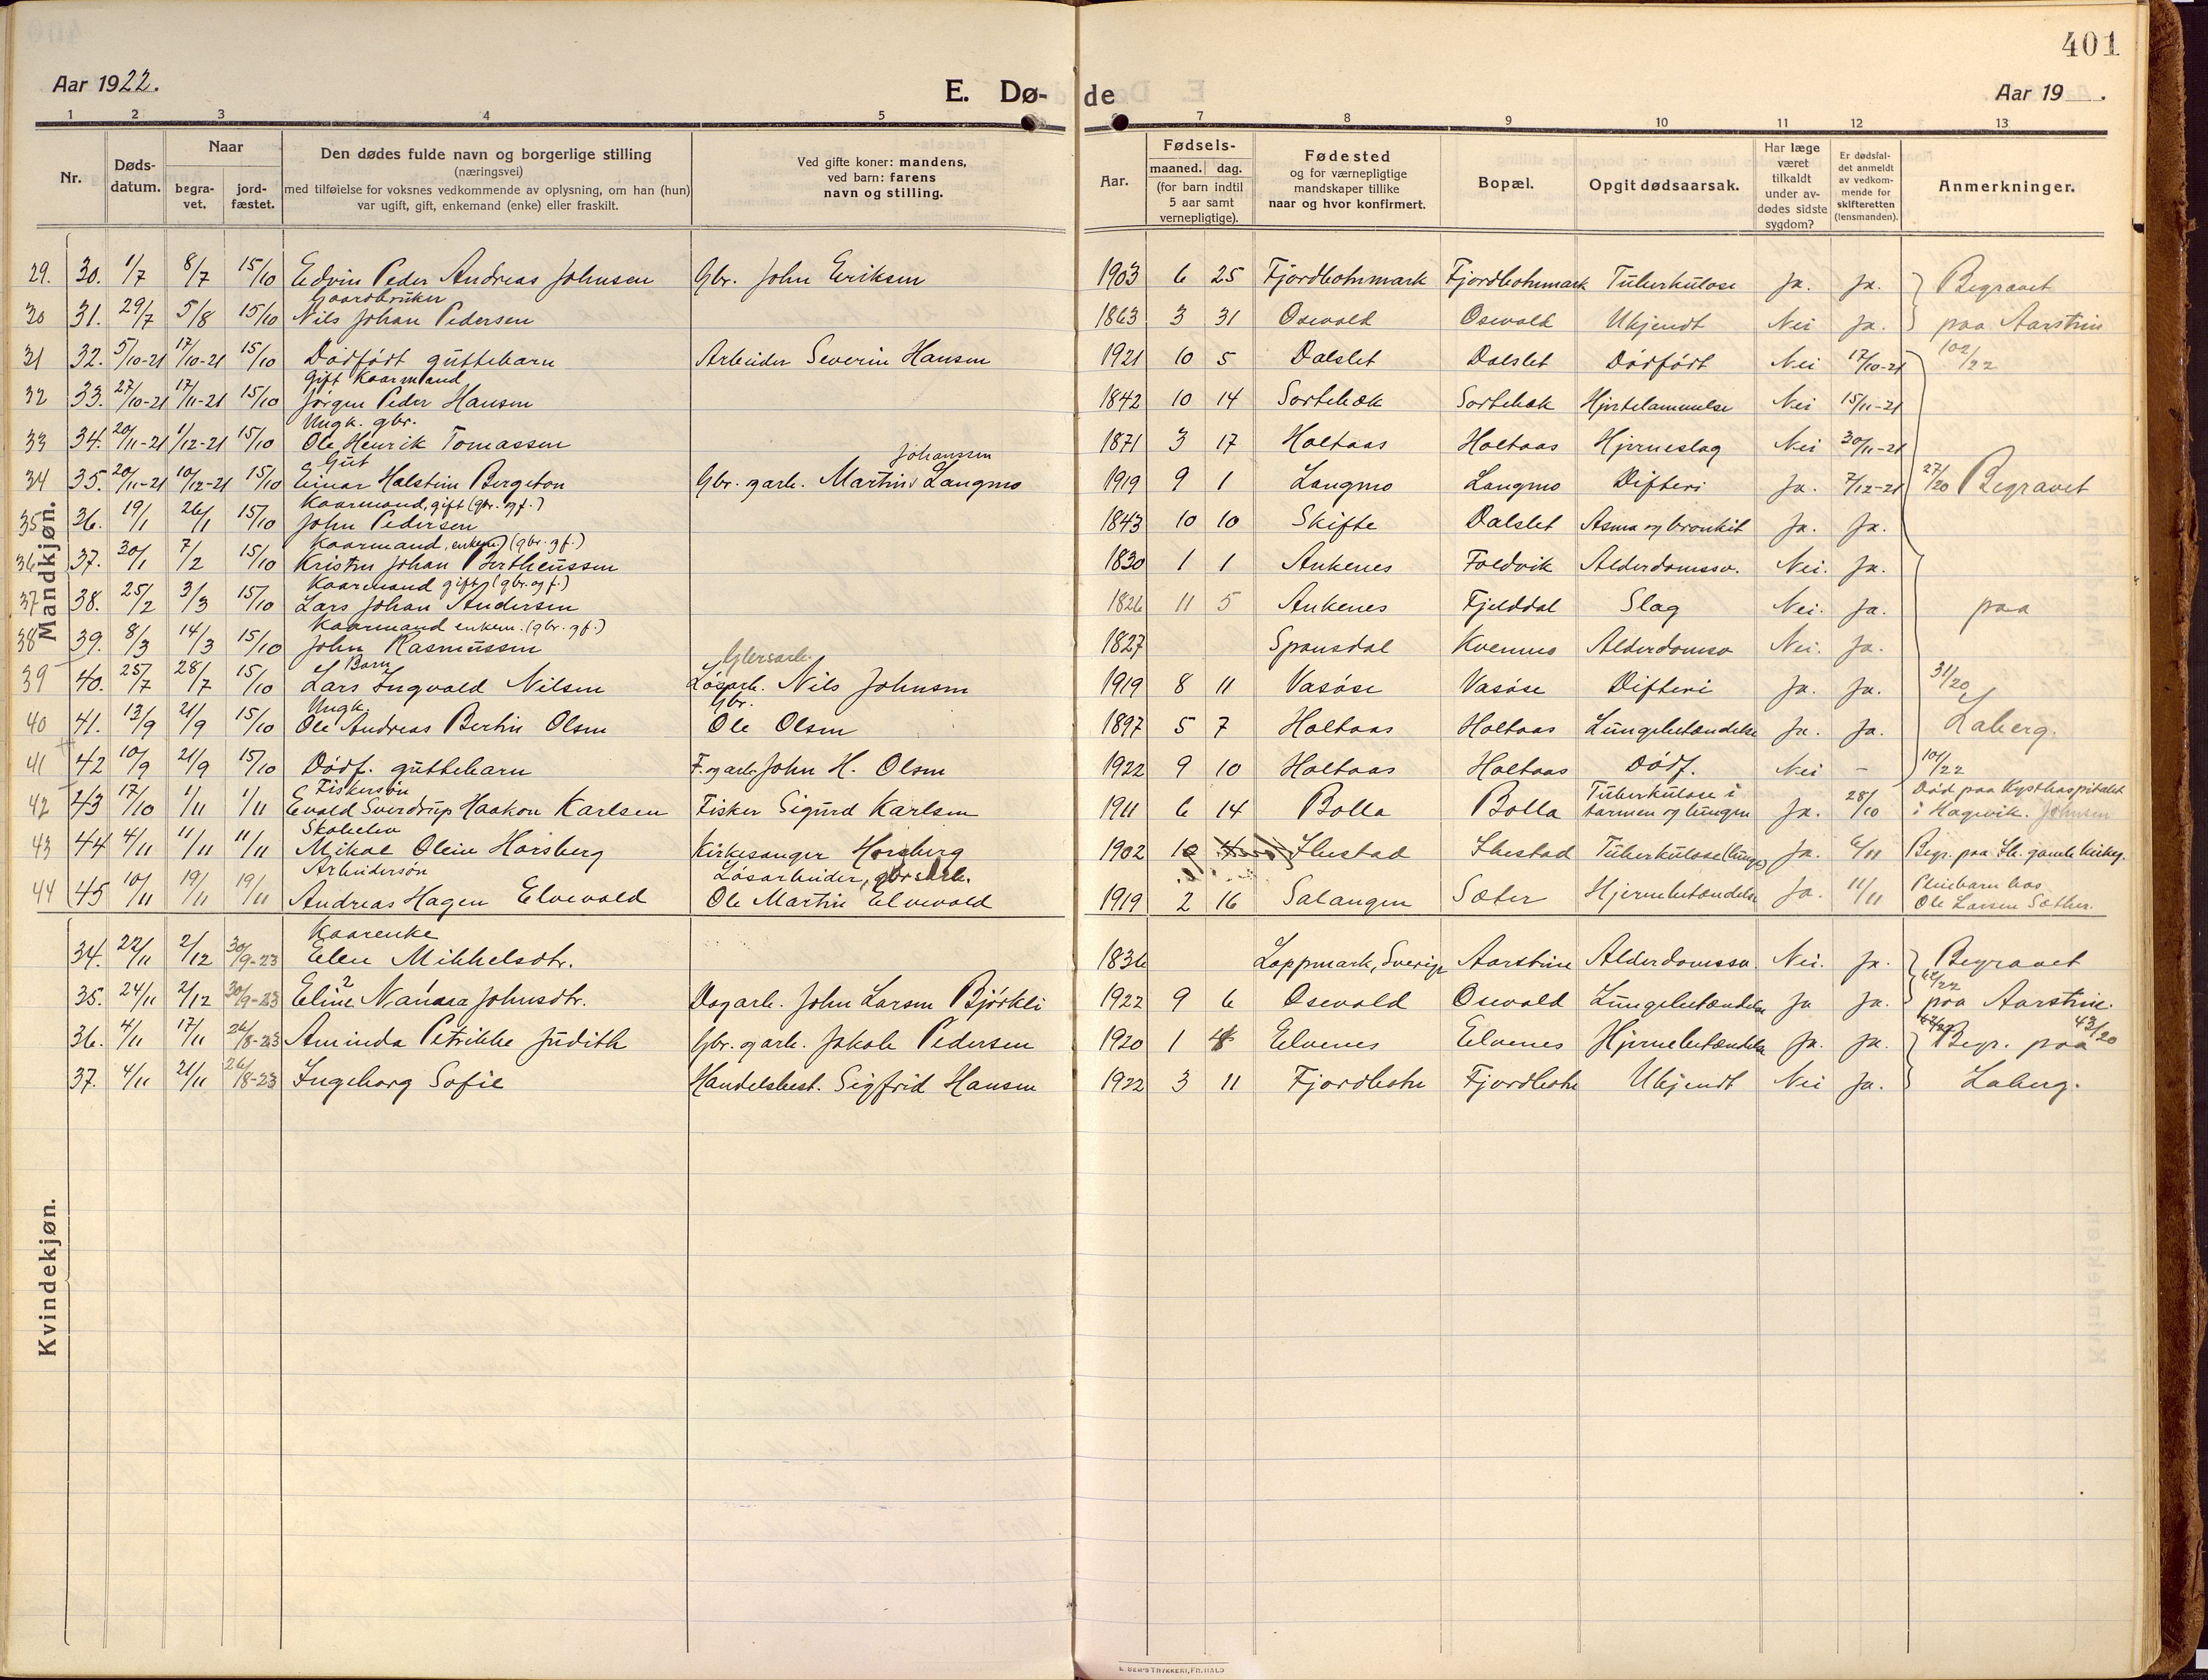 401
Aar 1922.
E. Dø-
de
Aar 19 .
1 2 3 4 5 7 8 9 10 11 12 13
Nr.
Døds-
datum.
Naar
begra-
vet.
jord-
fæstet.
Den dødes fulde navn og borgerlige stilling
(næringsvei)
med tilføielse for voksnes vedkommende av oplysning, om han (hun)
var ugift, gift, enkemand (enke) eller fraskilt.
Ved gifte koner: mandens,
ved barn: farens
navn og stilling.
Aar.
Fødsels-
maaned. dag.
(for barn indtil
5 aar samt
vernepligtige).
Fødested
og for værnepligtige
mandskaper tillike
naar og hvor konfirmert.
Bopæl.
Opgit dødsaarsak.
Har læge
været
tilkaldt
under av-
dødes sidste
sygdom?
Er dødsfal-
det anmeldt
av vedkom-
mende for
skifteretten
(lensmanden).
Anmerkninger.
Mandkjøn.
29. 30. 1/7 8/7 15/10 Edvin Peder Andreas Johnsen Gbr. John Eriksen 1903 6 25 Fjordbotnmark Fjordbotnmark Tuberkulose Ja. Ja. Begravet
Gaardbruker
30 31. 29/7 5/8 15/10 Nils Johan Pedersen 1863 3 31 Osevold Osevold Ukjendt Nei Ja. paa Aarstein
31 32. 5/10-21 17/10-21 15/10 Dødfødt guttebarn Arbeider Severin Hansen 1921 10 5 Dalslet Dalslet Dødfødt Nei 17/10-21 102/22
Gift Kaarmand
32 33. 27/10-21 17/11-21 15/10 Jørgen Peder Hansen 1842 10 14 Sortebæk Sortebæk Hjertelammelse Nei 15/11-21
Ungk. gbr.
33 34. 20/11-21 1/12-21 15/10 Ole Henrik Tomassen 1871 3 17 Holtaas Holtaas Hjerneslag Nei 30/11-21
Gut Johanssen
34 35. 20/11-21 10/12-21 15/10 Einar Halstein Bergeton Gbr. garb. Martin Langmo 1919 9 1 Langmo Langmo Difteri Ja. 7/12-21 27/20 Begravet
Kaarmand, gift (gbr. og f.)
35 36. 19/1 26/1 15/10 John Pedersen 1843 10 10 Skifte Dalslet Asma og bronkit Ja. Ja.
Kaarmand, enkem. (gbr. gf.)
36 37. 30/1 7/2 15/10 Kristen Johan Bertheussen 1830 1 1 Ankenes Foldvik Alderdomssv. Nei. Ja.
Kaarmand gift (gbr. og f.)
37 38. 25/2 3/3 15/10 Lars Johan Andersen 1826 11 5 Ankenes Fjelddal Slag Nei. Ja. paa
Kaarmand enkem. (gbr. gf.)
38 39. 8/3 14/3 15/10 John Rasmussen 1827 Spansdal Kvernmo Alderdomsv Nei. Ja.
Barn
39 40. 25/7 28/7 15/10 Lars Ingvald Nilsen Løsarb. Nils Johnsen 1919 8 11 Vasøse Vasøse Difteri Ja. Ja. 31/20
Ungk. Gbr.
40 41. 13/9 21/9 15/10 Ole Andreas Bertin Olsen Ole Olsen 1897 5 7 Holtaas Holtaas Lungebetændelse Ja. Ja. Laberg.
41 42 10/9 21/9 15/10 Dødf. guttebarn F. og arb. John H. Olsen 1922 9 10 Holtaas Holtaas Dødf. Nei - 101/22
Fiskersøn Tuberkulose i Død paa Kysthospitalet
42 43 17/10 1/11 1/11 Evald Sverdrup Haakon Karlsen Fisker Sigurd Karlsen 1911 6 14 Bolla Bolla tarmen og lungen Ja. 28/10 i Hagevik. Johnsen
Skoleelev
43 44 4/11 11/11 11/11 Mikal Olein Horsberg Kirkesanger Horsberg 1902 10 Ibestad Ibestad Tuberkulose (lunge) Ja. 6/11 Begr. paa Ib. gamle kirkeg.
Arbeidersøn Løsarbeider, gbrsarb. Pleiebarn hos
44 45 10/11 19/11 19/11 Andreas Hagen Elvevold Ole Martin Elvevold 1919 2 16 Salangen Sæter Hjernebetændelse Ja. 11/11 Ole Larsen Sæther.
Kvindekjøn.
Kaarenke
34. 22/11 2/12 30/9-23 Elen Mikkelsdtr. 1836 Lappmark, Sverige Aarstein Alderdomssv. Nei. Ja. Begravet
35. 24/11 2/12 30/9-23 Eline Nanna Johnsdtr. Dagarb. John Larsen Bjørkli 1922 9 6 Osevold Osevold Lungebetændelse Ja Ja. 62/22 paa Aarstein.
36. 4/11 17/11 26/8-23 Aminda Petrikke Judith Gbr. og arb. Jakob Pedersen 1920 1 Elvenes Elvenes Hjernebetændelse Ja. Ja. Begr. paa 43/20
37. 4/11 21/11 26/8-23 Ingeborg Sofie Handelsbest. Sigfrid Hansen 1922 3 11 Fjordbotn Fjordbotn Ukjendt Nei Ja. Laberg.